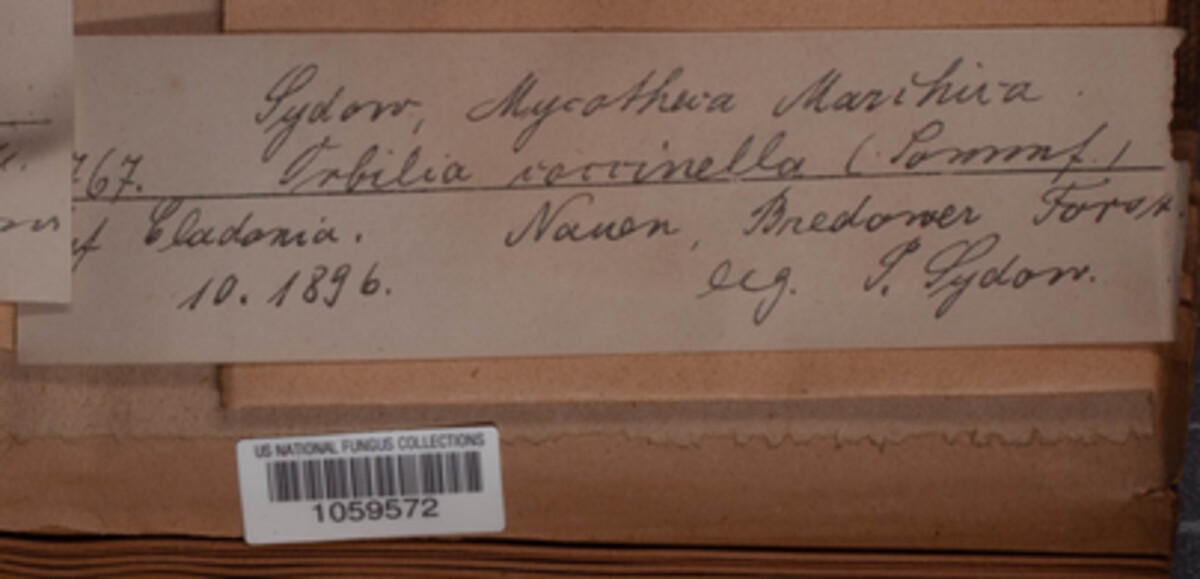 Sydow, Mycotheca Marchica
767. Orbilia coccinella (Sommf.)
Cladonia. Nauen, Bredower Forst.
10. 1896. leg. P. Sydow.
US NATIONAL FUNGUS COLLECTIONS
1059572